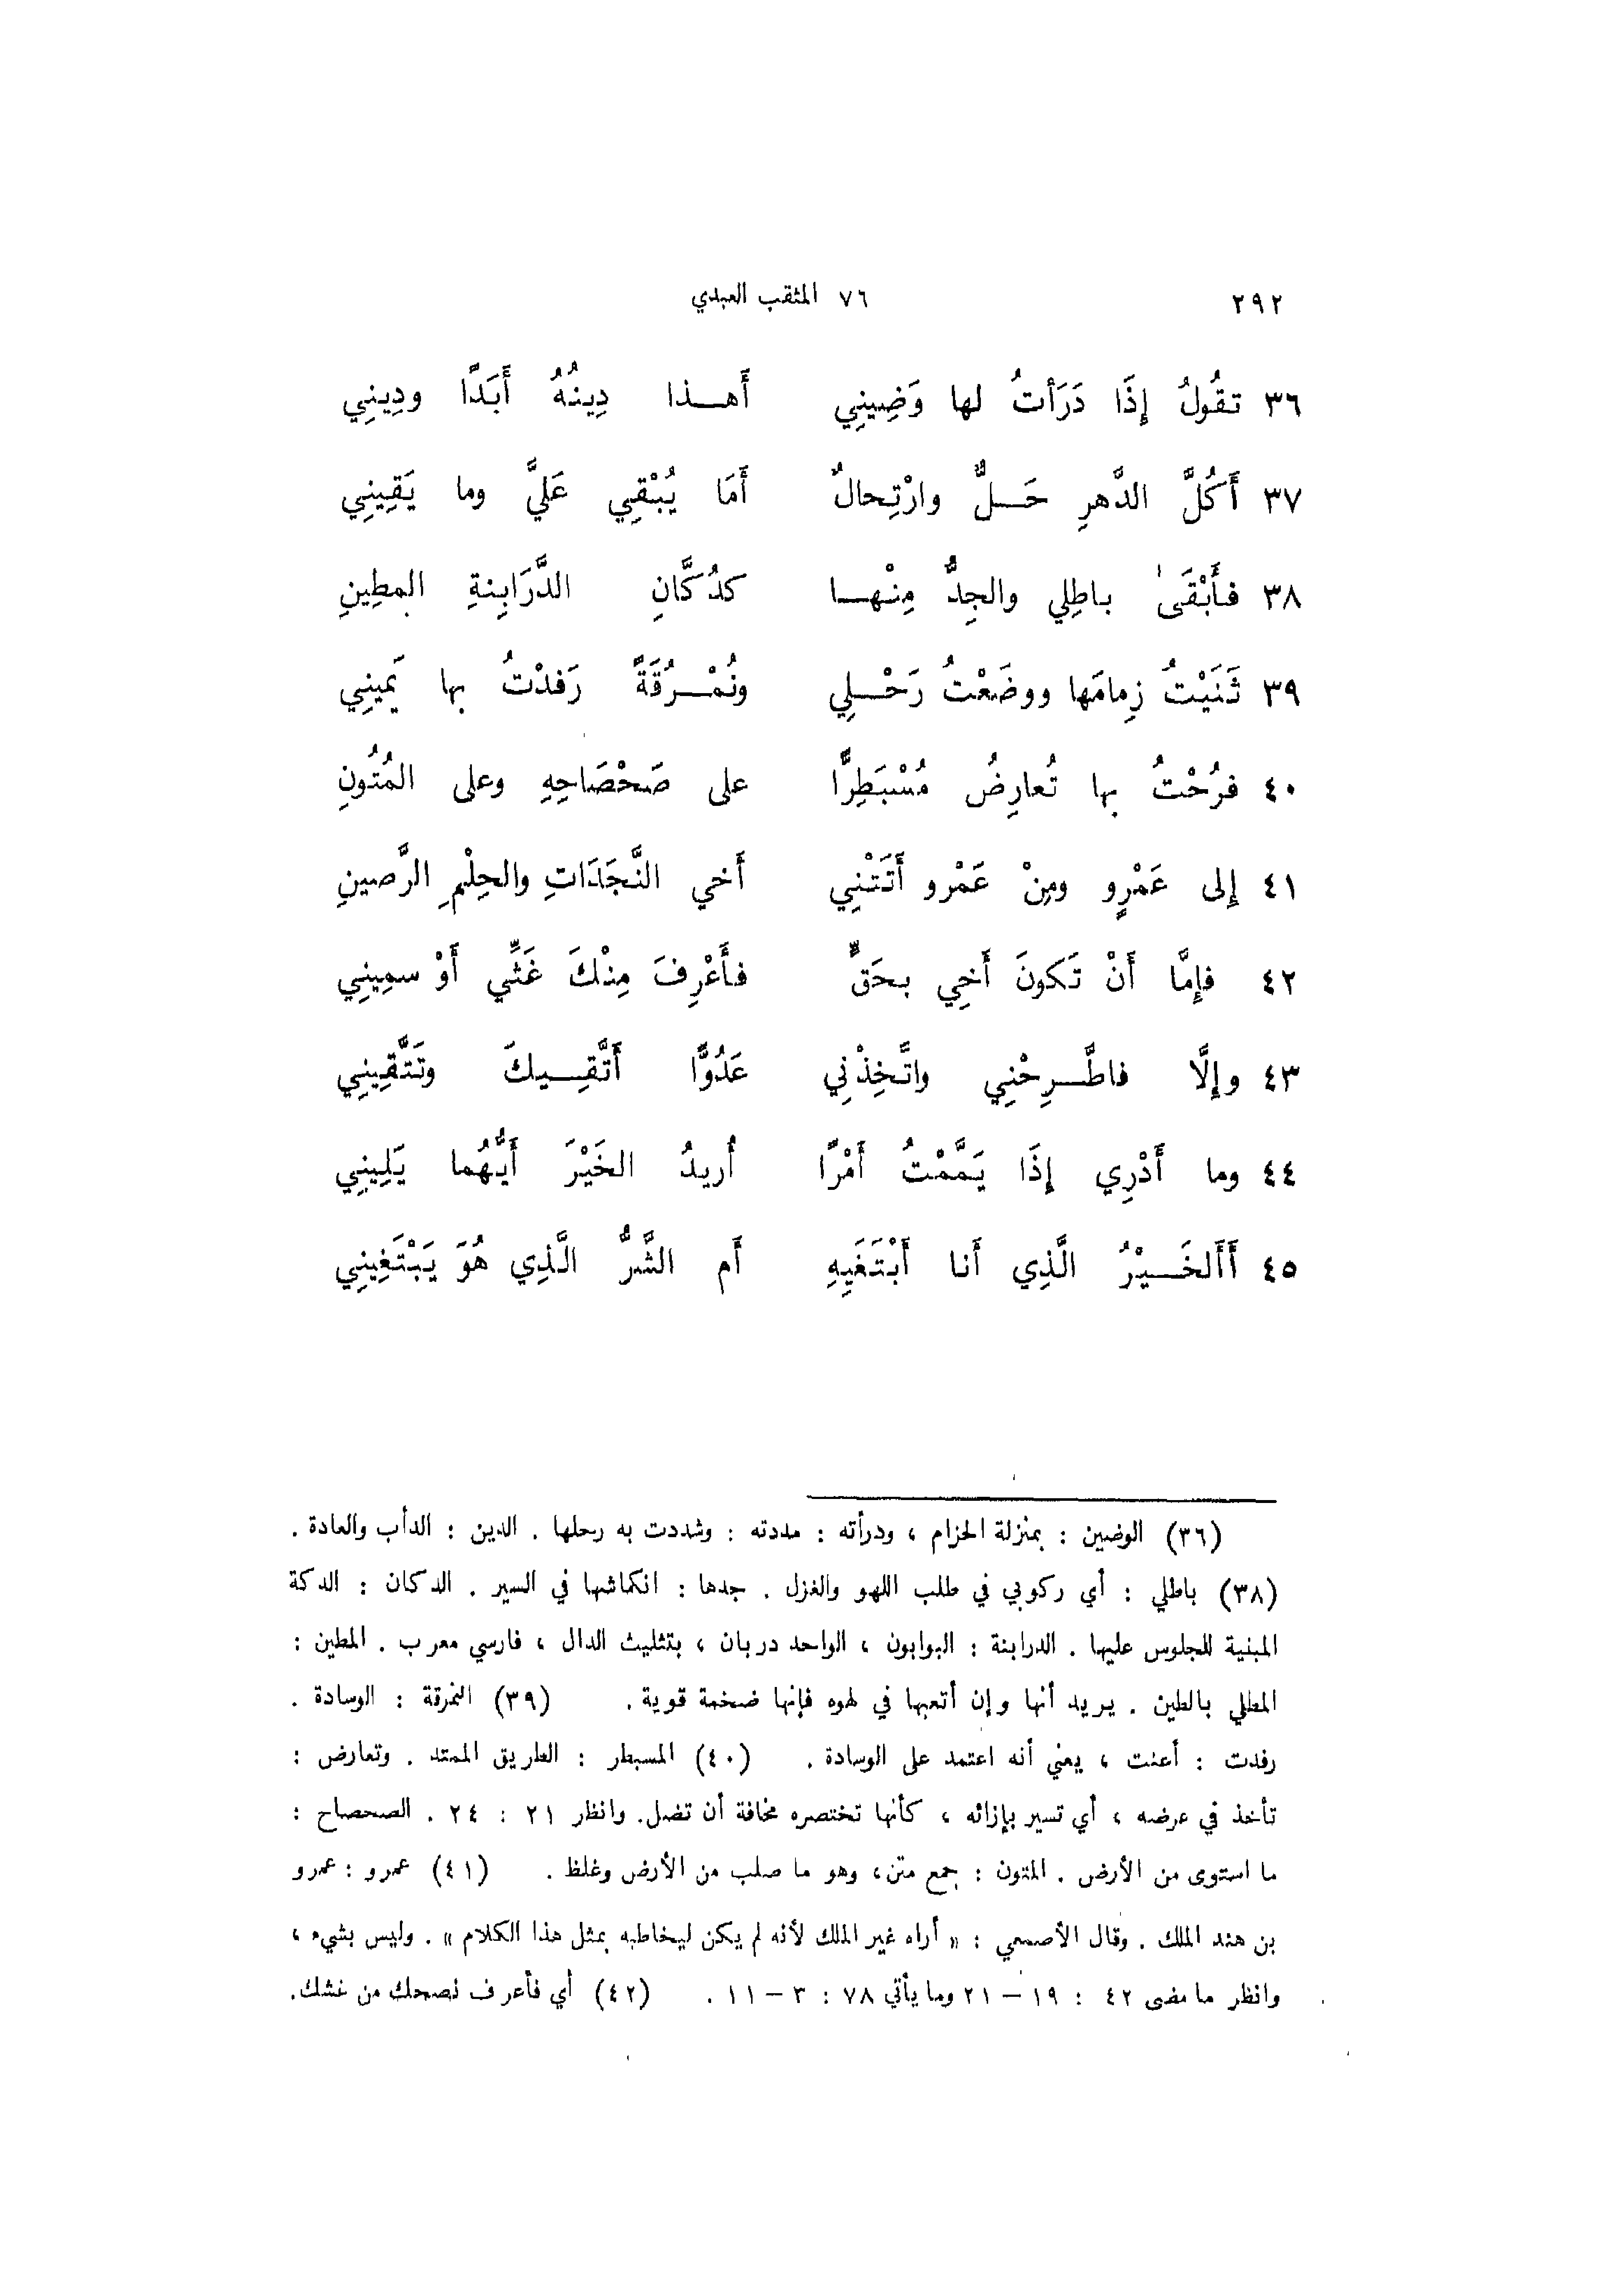 ٢٩٢ ٧٦ المثقب العبدي
٣٦ تقُولُ إِذَا دَرَأتُ لها وَضِينِي أَهـــذا دِينُهُ أَبَدًا ودِينِي
٣٧ أَكُلَّ الدَّهرِ حَـــلٌّ وارْتِحالٌ أَمَا يُبْقِي عَلَيَّ وما يَقِينِي
٣٨ فأَبْقَىٰ باطِلي والجِدُّ مِنْهـــا كدُكَّانِ الدَّرَابِنةِ المطِينِ
٣٩ ثَنَيْتُ زِمامَها ووضَعْتُ رَحْـــلِي ونُمْـــرُقَةً رَفدْتُ بها يَمينِي
٤٠ فرُحْتُ بها تُعارِضُ مُسْبَطِرًّا على صَحْصَاحِهِ وعلى المُتُونِ
٤١ إِلى عَمْرٍو ومِنْ عَمْرو أَتَتْنِي أَخي النَّجَدَاتِ والحِلْمِ الرَّصينِ
٤٢ فإِمَّا أَنْ تَكونَ أَخِي بحَقٍّ فأَعْرِفَ مِنْكَ غَثِّي أَوْ سمِينِي
٤٣ وإِلَّا فاطَّـــرِحْنِي واتَّخِذْنِي عَدُوًّا أَتَّقِـــيكَ وتَتَّقِينِي
٤٤ وما أَدْرِي إِذَا يَمَّمْتُ أَمْرًا أُريدُ الخَيْرَ أَيُّهُما يَلِينِي
٤٥ أَأَلخَـــيْرُ الَّذِي أَنا أَبْتَغَيِهِ أَم الشَّرُّ الَّذِي هُوَ يَبْتَغِينِي
(٣٦) الوضين : بمنزلة الحزام ، ودرأته : مددته : وشددت به رحلها . الدين : الدأب والعادة .
(٣٨) باطلي : أي ركوبي في طلب اللهو والغزل . جدها : انكماشها في السير . الدكان : الدكة
المبنية للجلوس عليها . الدرابنة : البوابون ، الواحد دربان ، بتثليث الدال ، فارسي معرب . المطين :
المطلي بالطين . يريد أنها وإن أتعبها في لهوه فإنها ضخمة قوية . (٣٩) النمرقة : الوسادة .
رفدت : أعنت ، يعني أنه اعتمد على الوسادة . (٤٠) المسبطر : الطريق الممتد . وتعارض :
تأخذ في عرضه ، أي تسير بإزائه ، كأنها تختصره مخافة أن تضل. وانظر ٢١ : ٢٤ . الصحصاح :
ما استوى من الأرض . المتون : جمع متن، وهو ما صلب من الأرض وغلظ . (٤١) عمرو : عمرو
بن هند الملك . وقال الأصمعي : « أراه غير الملك لأنه لم يكن ليخاطبه بمثل هذا الكلام » . وليس بشيء ،
وانظر ما مضى ٤٢ : ١٩ – ٢١ وما يأتي ٧٨ : ٣ – ١١ . (٤٢) أي فأعرف نصحك من غشك.